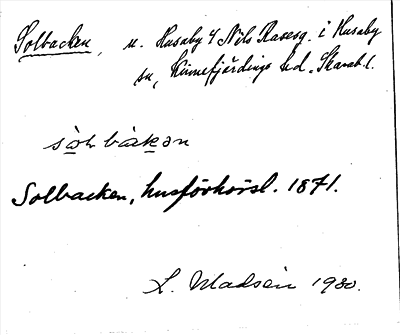 Solbacken, u. Husaby 4 Nils Rasesg. i Husaby
sn, Kinnefjärdings hd. Skarab. l.
sol bakən
Solbacken, husförhörsl. 1871.
L. Madsén 1980.